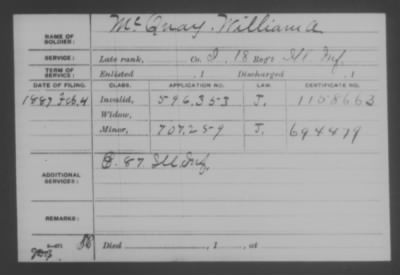 NAME OF SOLDIER: McQuay, William A
SERVICE: Late rank, Co. I, 18 Reg't Ill Inf.
TERM OF SERVICE: Enlisted , 1 Discharged , 1
DATE OF FILING. CLASS. APPLICATION NO. LAW. CERTIFICATE NO.
1887 Feb, 4 Invalid, 596,353 J. 1158663
Widow,
Minor, 707,259 J. 694479
ADDITIONAL SERVICES: B. 87. Ill Inf.
REMARKS:
Died , 1 , at